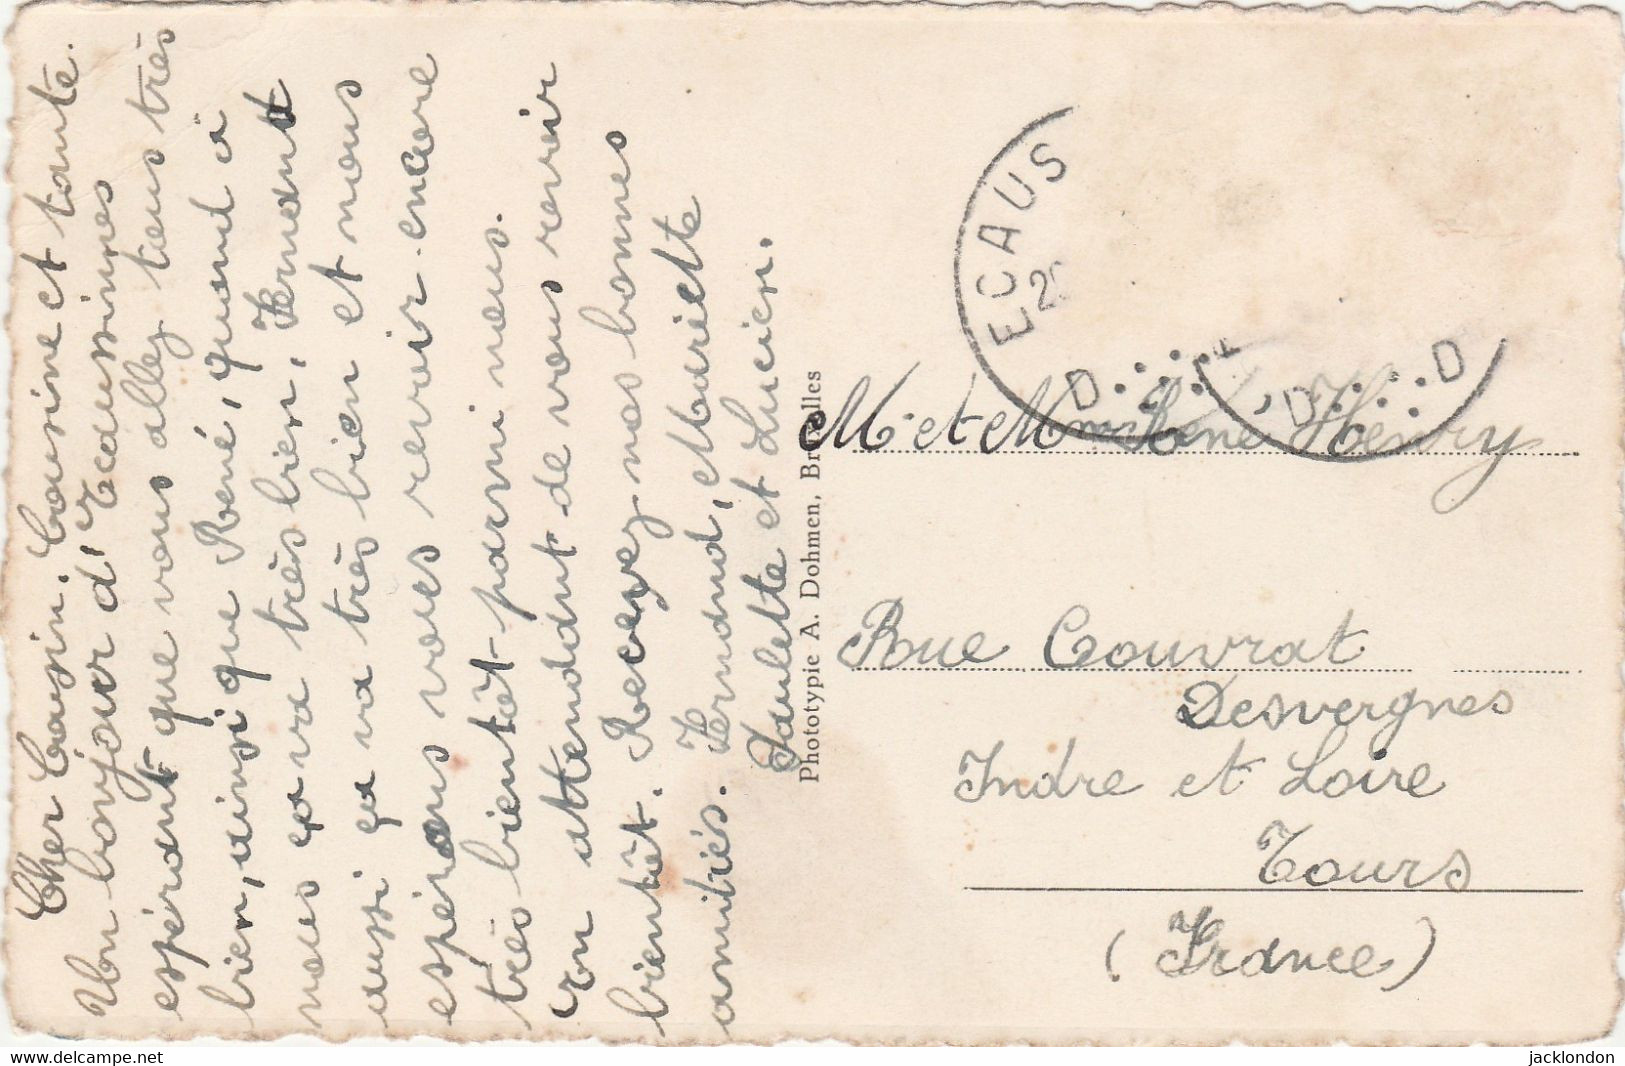 Cher Cousin. Cousine et tante.
Un bonjour d'Ecaussinnes
espérant que vous allez tous très
bien, ainsi que René, quand à
nous ça va très bien, Fernand
aussi ça va très bien et nous
espérons vous revoir encore
très bientôt parmi nous.
En attendant de vous revoir
bientôt. Recevez nos bonnes
amitiés. Fernand, Mariette
Paulette et Lucien.
Phototypie A. Dohmen, Bruxelles
ECAUS
2
D
D D
M. et Mme René Henry
Rue Couvrat
Desvergnes
Indre et Loire
Tours
(France)
www.delcampe.net
jacklondon